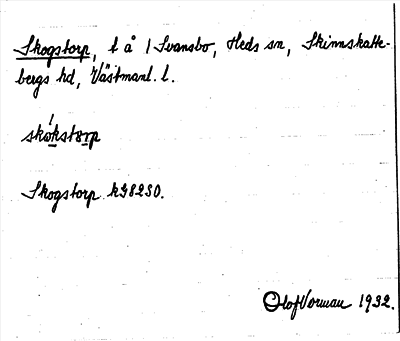 Skogstorp, t å 1 Svansbo, Heds sn, Skinnskatte-
bergs hd, Västmanl. l.
skókstɵrp
Skogstorp k38230.
Olof Vorman 1932.